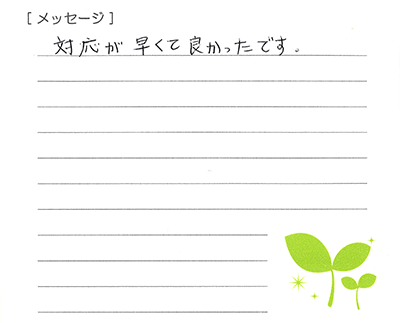 [メッセージ]
対応が早くて良かったです。